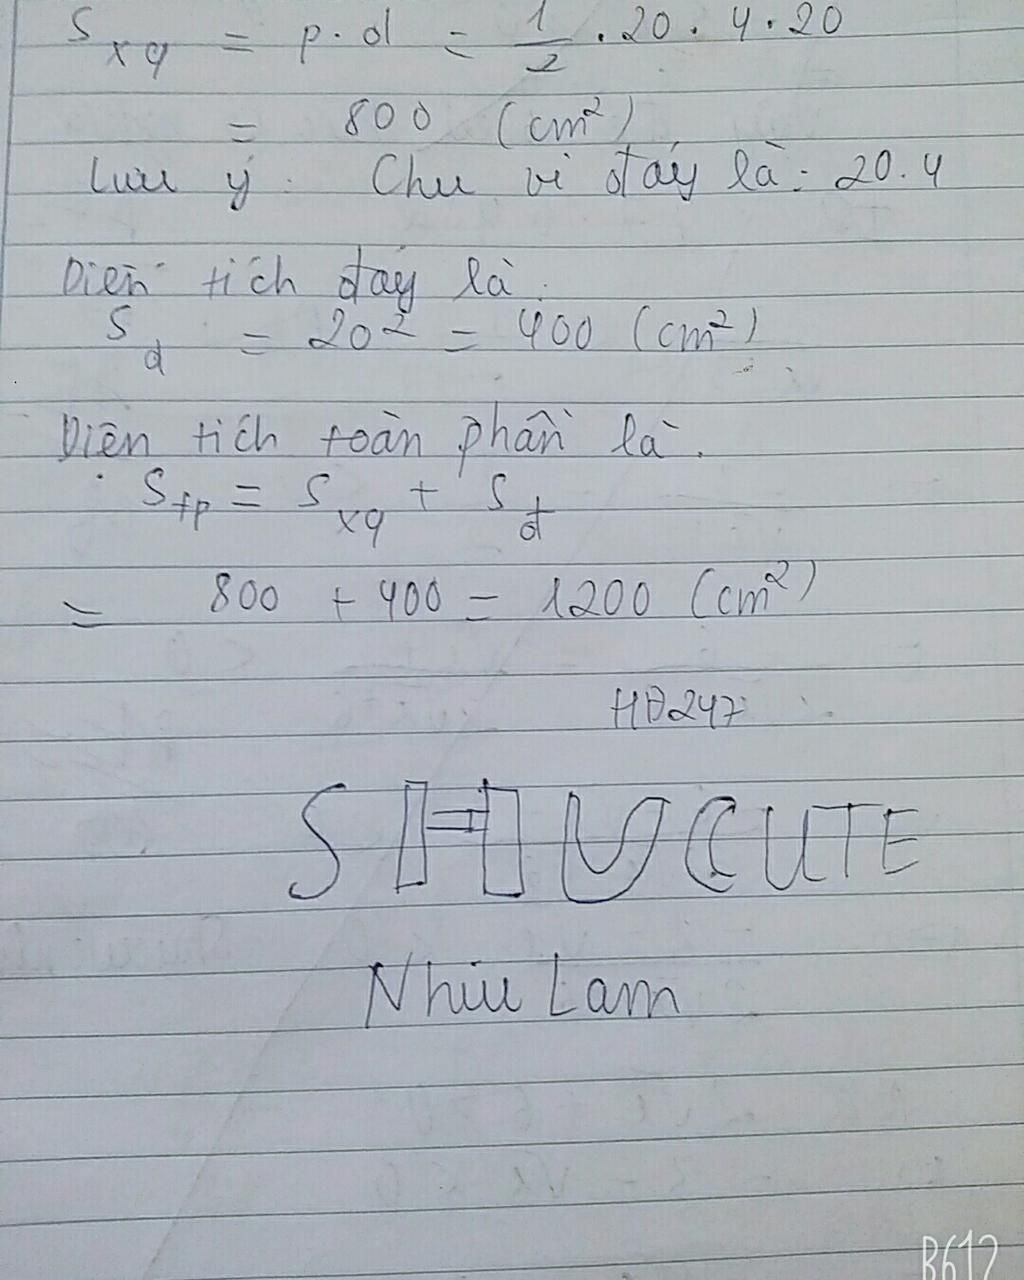 S xq = p . d = 1/2 . 20 . 4 . 20
= 800 (cm²)
Lưu ý : Chu vi đáy là : 20 . 4
Diện tích đáy là :
S đ = 20² = 400 (cm²)
Diện tích toàn phần là .
S tp = S xq + S đ
= 800 + 400 = 1200 (cm²)
HĐ247
SHU CUTE
Nhiu Lam
B612